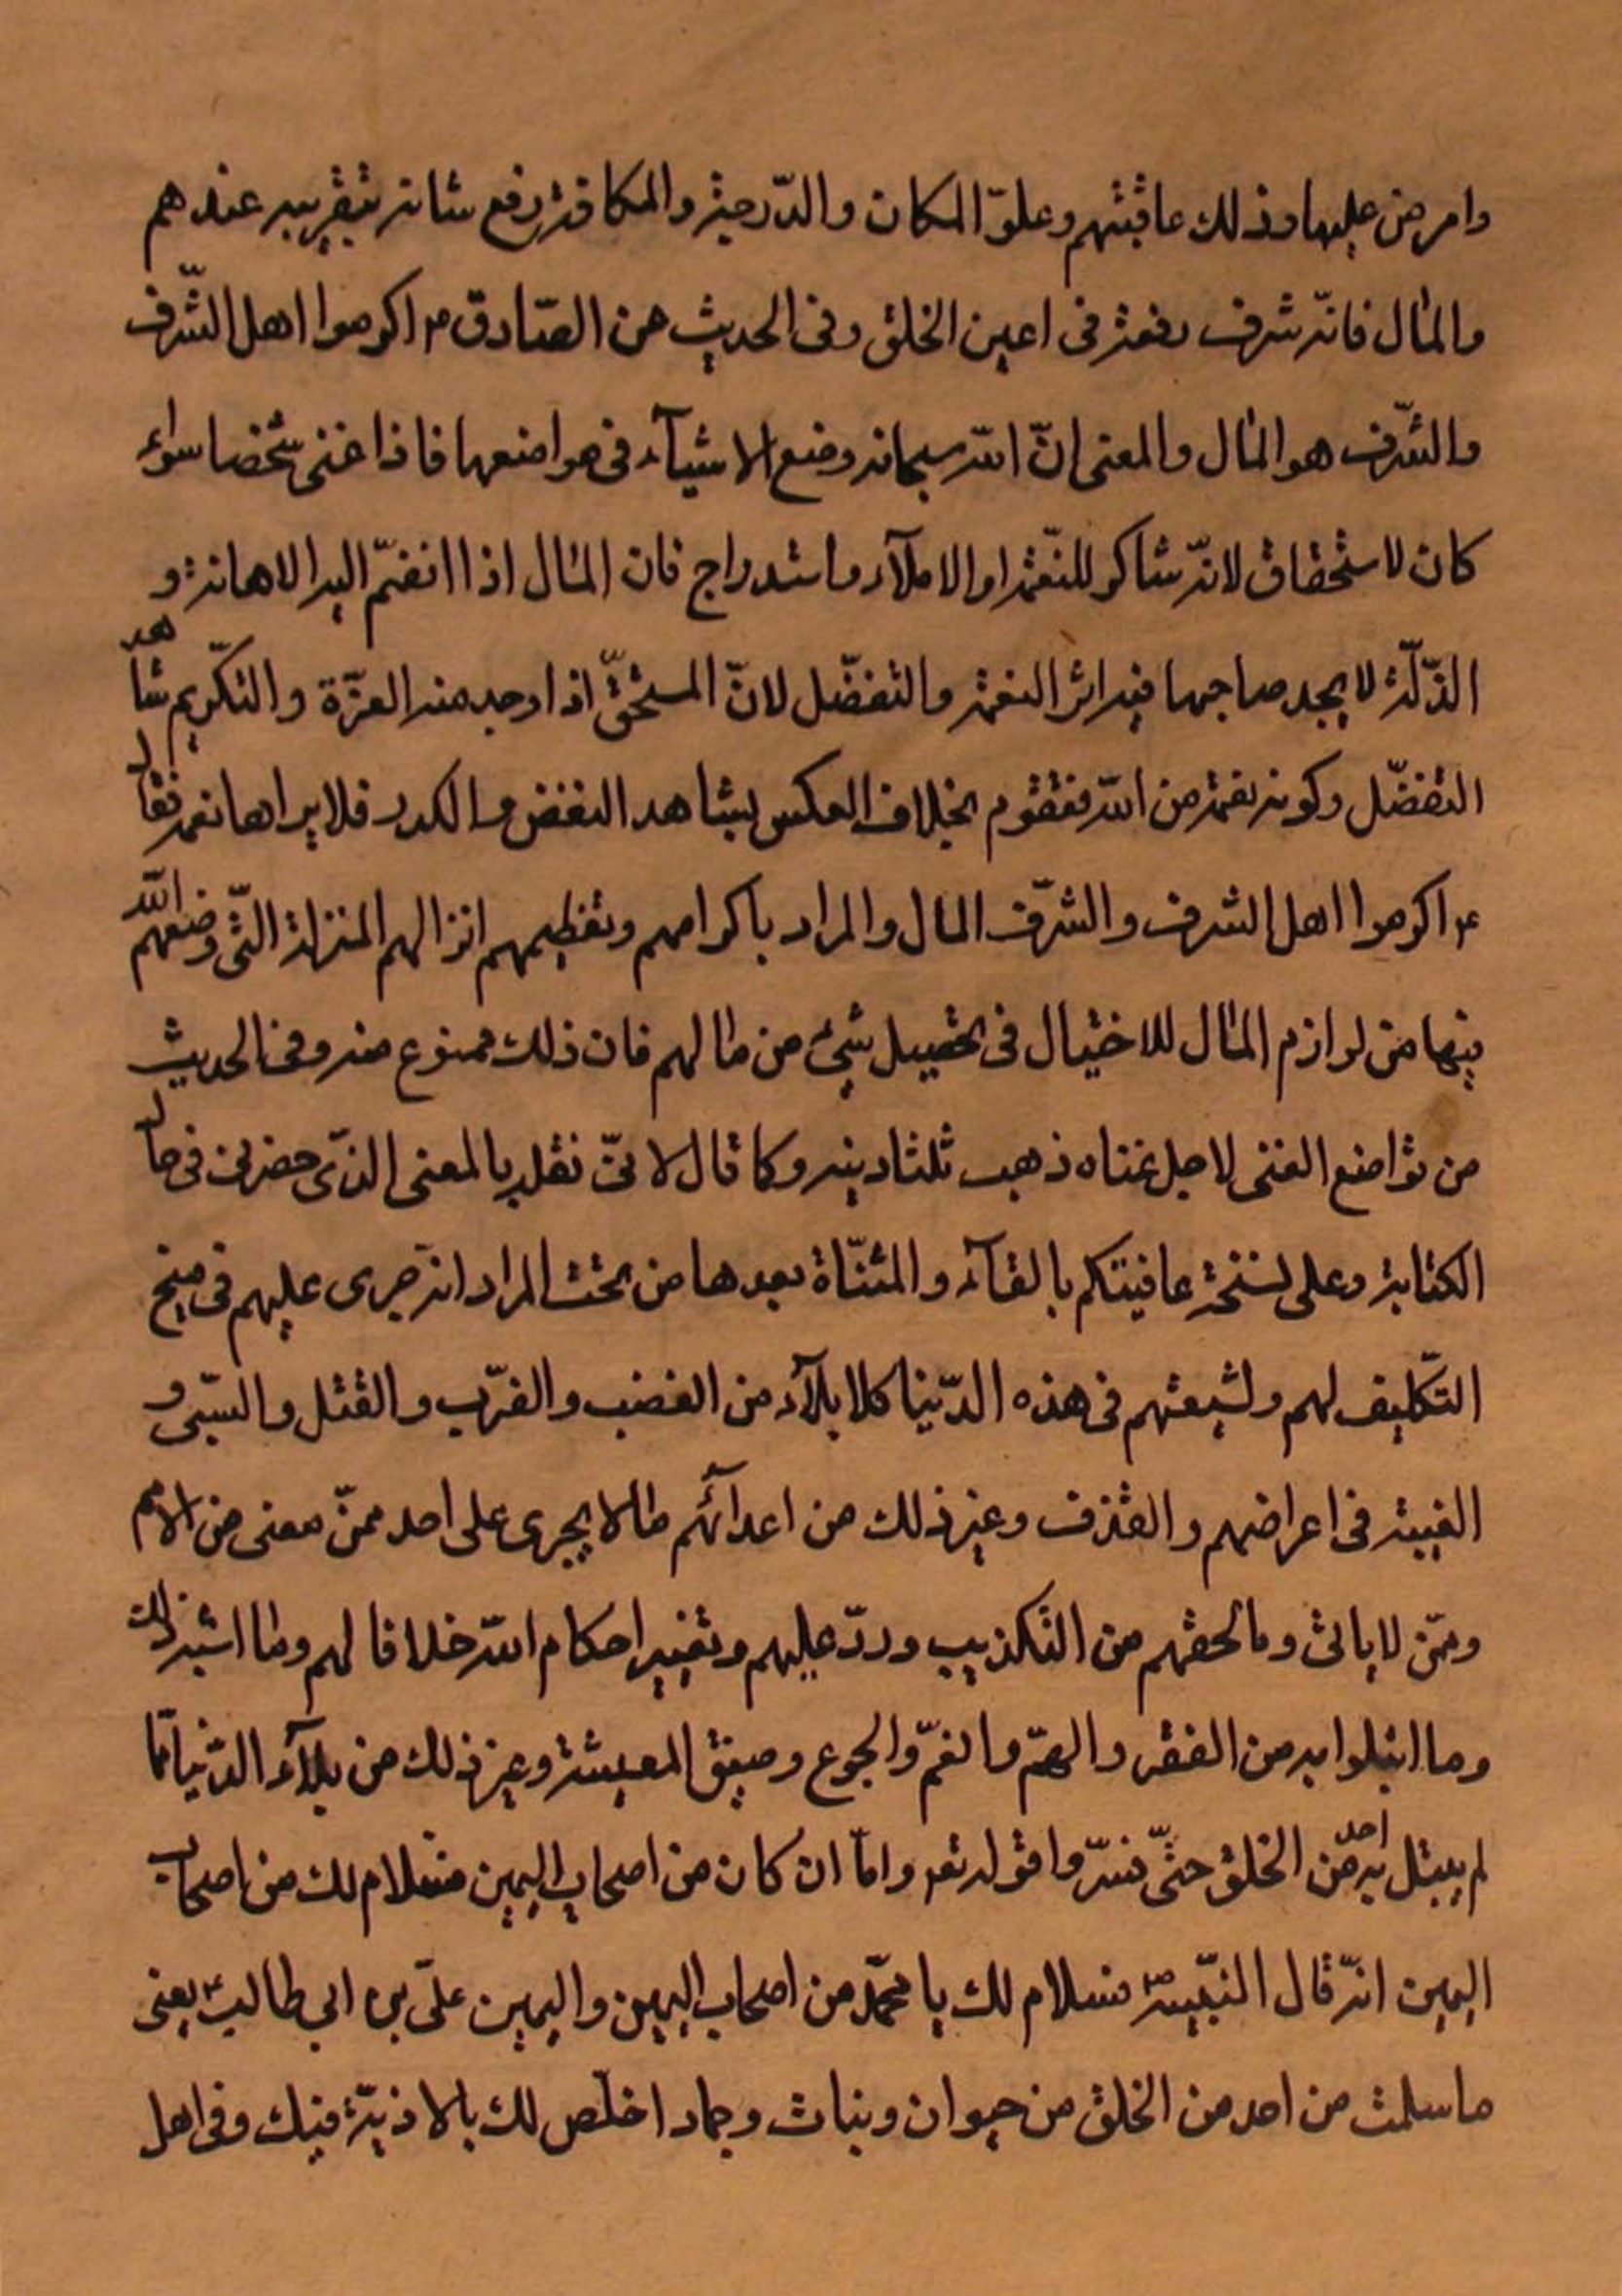 وامرضن عليها وذلك عاقبتهم وعلوّ المكان والدّرجة والمكافة رفع شانه بتقريبه عندهم
والمال فانّه شرف رفعة فى اعين الخلق وفى الحديث عن الصّادق ع اكرموا اهل الشّرف
والشّرف هو المال والمعنى انّ الله سبحانه وضع الاشيآء فى مواضعها فاذا غنى شخصا سوآء
كان لاستحقاق لانّه شاكر للنّعمة او الاملآء واستدراج فان المال اذا انضمّ اليه الاهانة و
الذّلّة لا يجد صاحبها فيه اثر النعمة والتفضّل لانّ المستحقّ اذا وجد منه العزّة والتكريم شاهد
التفضّل وكونه نعمة من الله فيقوم بخلاف العكس ليشاهد النغض والكدر فلا يراها نعمة فقال
ع اكرموا اهل الشرف والشرف المال والمراد باكرامهم وتعظيمهم انزالهم المنزلة الّتى وضعهم الله
فيها من لوازم المال للاختيال فى تحصيل شىء من مالهم فان ذلك ممنوع منه وفى الحديث
من تواضع لغنى لاجل غناه ذهب ثلثا دينه وكما قال لانّى نقلته بالمعنى الذّى حضرنى فى حال
الكتابة وعلى نسخة عافيتكم بالفآء والمثنّاة بعدها من تحت المراد انه جرى عليهم فى منح
التكليف لهم ولشيعتهم فى هذه الدّنيا كلا بلآء من الغضب والضّرب والقتل والسّبى و
الغيبة فى اعراضهم والقذف وغير ذلك من اعدآئهم ما لا يجرى على احد ممّن مضى من الامم
وممّن لا ياتى وما لحقهم من التكذيب وردّ عليهم وتغيير احكام الله خلافا لهم وما اشبه ذلك
وما ابتلوا به من الفقر والهمّ والغمّ والجوع وضيق المعيشة وغير ذلك من بلآء الدّنيا ممّا
لم يبتل به احد من الخلق حتّى فسّروا قوله تعه وامّا ان كان من اصحاب اليمين فسلام لك من اصحاب
اليمين انّه قال النّبيّه ص فسلام لك يا محمّد من اصحاب اليمين واليمين علىّ بن ابى طالب ع يعنى
ما سلمت من احد من الخلق من حيوان ونبات وجماد اخلص لك بالاذيّة فيك وفى اهل